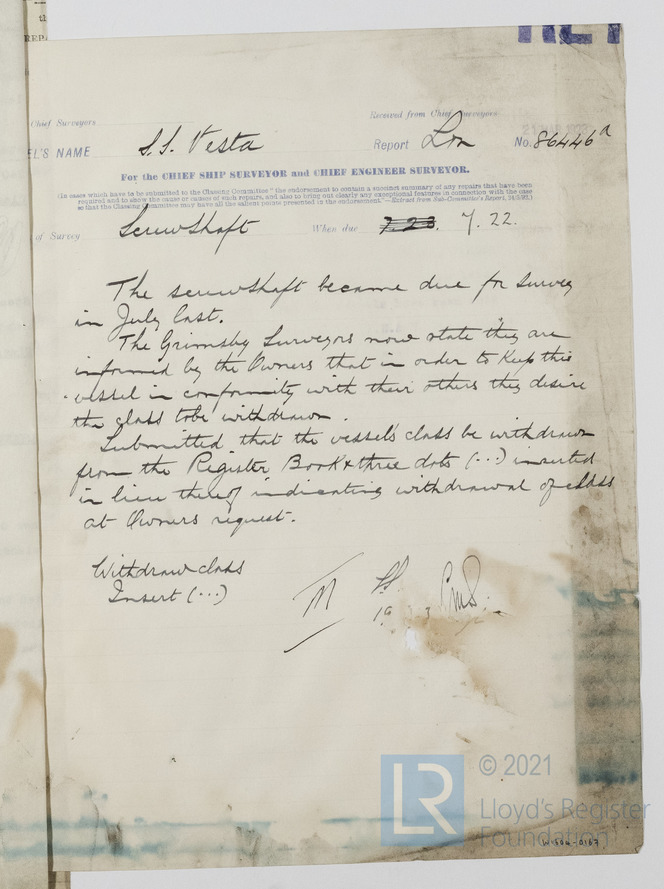 REP
RET
Chief Surveyors
Received from Chief Surveyors
EL'S NAME S.S. Vesta Report Lon No. 86446a
For the CHIEF SHIP SURVEYOR and CHIEF ENGINEER SURVEYOR.
(In cases which have to be submitted to the Classing Committee "the endorsement to contain a succinct summary of any repairs that have been
required and to show the cause or causes of such repairs, and also to bring out clearly any exceptional features in connection with the case
so that the Classing Committee may have all the salient points presented in the endorsement."—Extract from Sub-Committee's Report,
of Survey Screwshaft When due 7.23. 7.22.
The screwshaft became due for survey
in July last.
The Grimsby Surveyors now state they are
informed by the Owners that in order to keep this
vessel in conformity with their others they desire
the class to be withdrawn.
Submitted that the vessel's class be withdrawn
from the Register Book & three dots (...) inserted
in lieu thereof indicating withdrawal of class
at Owners request.
Withdraw class
Insert (...)
© 2021
LR
Lloyd's Register
Foundation